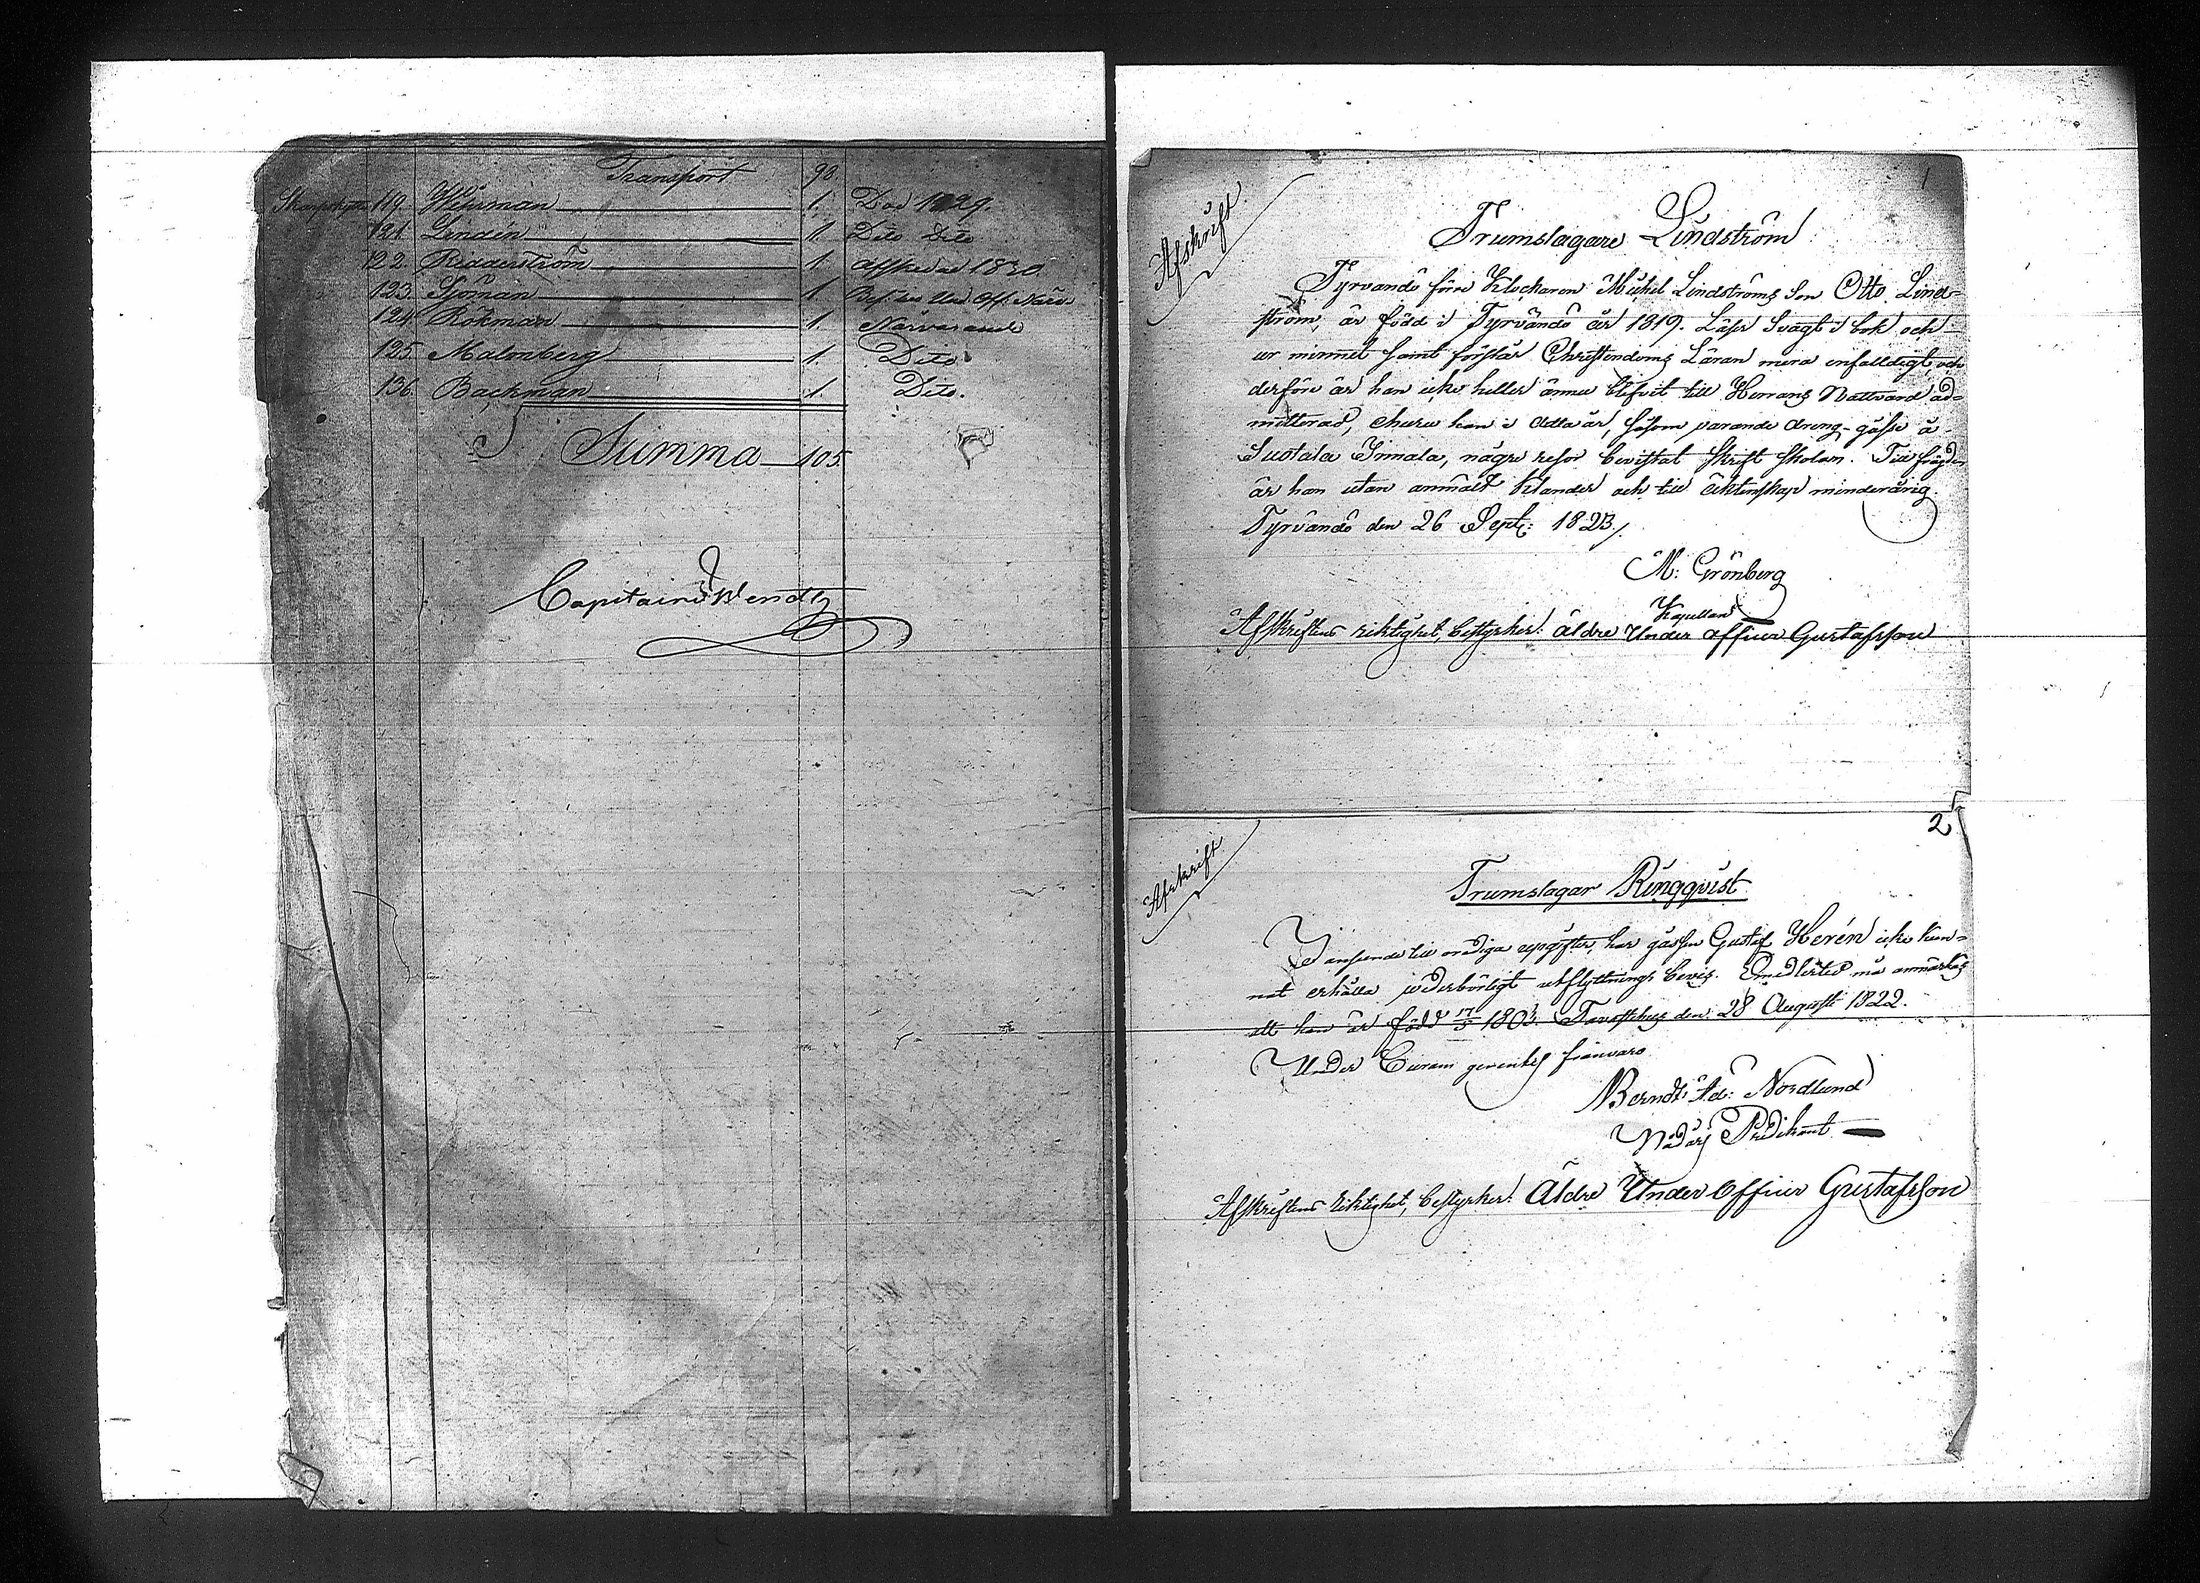 Transport 98.
Skarpskytt 119. Wihrman 1. Död 1829.
121. Lendin 1. Dito Dito
122. Ridderström 1. Afskedad 1830.
123. Sjöman 1. Bef. Und. Off.
124. Rökman 1. Närvarande
125. Malmberg 1. Dito
136. Backman 1. Dito.
Summa 105.
Capitain Wendt
1
Afskrift
Trumslagare Lindström
Tyrvändö förre Klockaren Mickel Lindströms Son Otto Lind-
ström, är född i Tyrvändö år 1819. Läser Svagt i bok och
ur minnet samt förstår Christendoms Läran mera enfalldigt, och
derföre är han icke heller ännu blefvit till Herrans Nattvard ad-
mitterad, ehuru han i detta år, såsom varande dreng-gåsse å
Suotala Inmala, några resor bevistat Skrift Skolan. Till frägden
är han utan anmält klander och till äktenskap minderårig.
Tyrvändö den 26 Sept: 1823.
M: Grönberg
Kapellan
Afskriftens riktighet, bestyrker: Äldre Under officer Gustafsson
2
Afskrift
Trumslagar Ringqvist
I anseende till orediga upgifter, har gåssen Gustaf Herén icke kun-
nat erhålla vederbörligt utflyttnings bevis. Emedlertid må anmärkas
att han är född 17/5 1803. Tavastehus den 28 Augusti 1822.
Under Curam gerentis frånvaro
Berndt Ad: Nordlund
Nådårs Predikant
Afskriftens riktighet, bestyrker: Äldre Under Officer Gustafsson